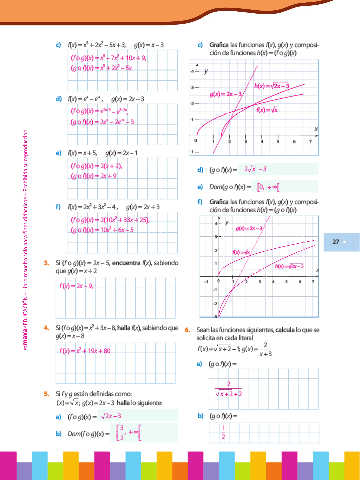 c) f(x) = x³ + 2x² − 5x + 3, g(x) = x − 3
d) f(x) = eˣ − e⁻ˣ, g(x) = 2x − 3
e) f(x) = x + 5, g(x) = 2x − 1
(f o g)(x) = 2(x + 2),
(g o f)(x) = 2x + 9
f) g(x) = 2x + 3
3. Si (f o g)(x) = 2x − 5, encuentra f(x), sabiendo
que g(x) = x + 2
f(x) = 2x − 9,
4. Si (f o g)(x) = x² + 3x − 8, halla f(x), sabiendo que
g(x) = x − 8
f(x) = x² + 19x + 80
5. Si f y g están definidas como:
f(x) = √x; g(x) = 2x − 3 halla lo siguiente:
a) (f o g)(x) = √2x − 3
b) Dom(f o g)(x) = [3/2, +∞[
c) Grafica las funciones f(x), g(x) y composi-
ción de funciones h(x) = (f o g)(x)
y
h(x) = √2x − 3
g(x) = 2x − 3
f(x) = √x
x
d) (g o f)(x) = 2√x − 3
e) Dom(g o f)(x) = [0, +∞[
f) Grafica las funciones f(x), g(x) y composi-
ción de funciones h(x) = (g o f)(x)
y
g(x) = 2x − 3
f(x) = √x
h(x) = √2x − 3
x
27
6. Sean las funciones siguientes, calcula lo que se
solicita en cada literal
f(x) = √x + 2 − 1; g(x) = 2/x + 3
a) (g o f)(x) =
2/√x + 2 + 2
b) (g o f)(x) =
1/2